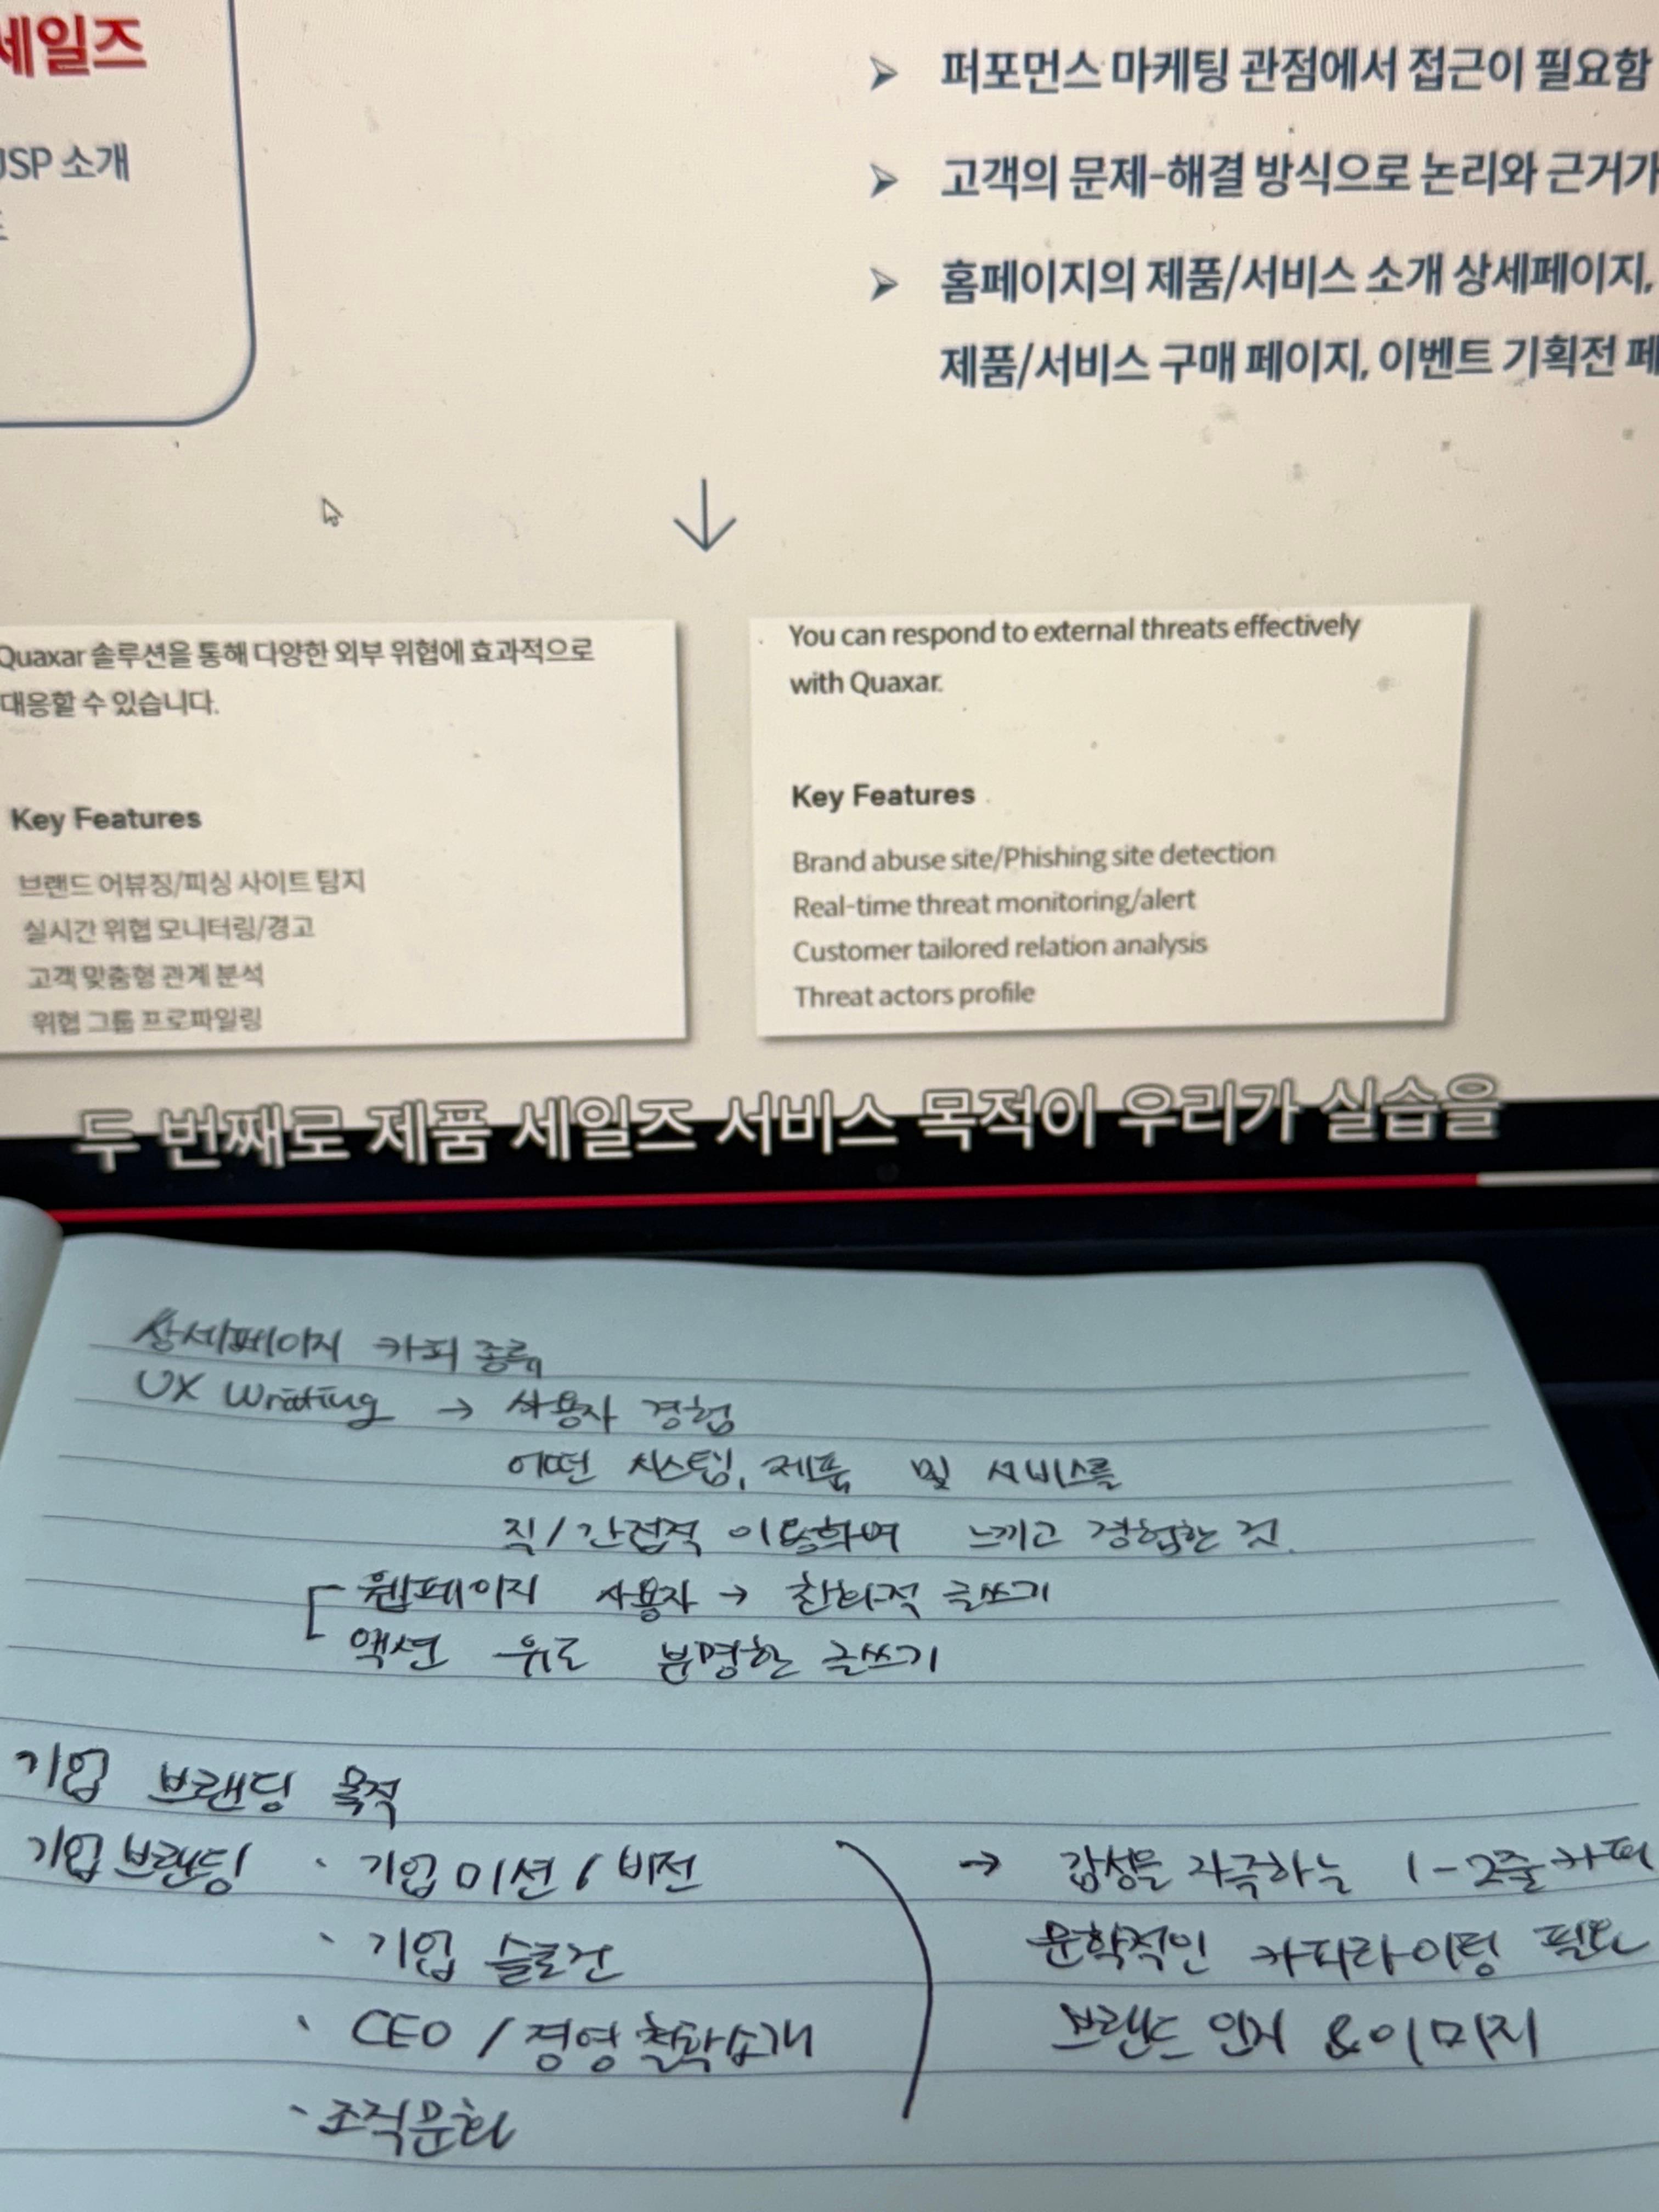 세일즈
USP 소개
퍼포먼스 마케팅 관점에서 접근이 필요함
고객의 문제-해결 방식으로 논리와 근거가
홈페이지의 제품/서비스 소개 상세페이지,
제품/서비스 구매 페이지, 이벤트 기획전 페
Quaxar 솔루션을 통해 다양한 외부 위협에 효과적으로
대응할 수 있습니다.
Key Features
브랜드 어뷰징/피싱 사이트 탐지
실시간 위협 모니터링/경고
고객 맞춤형 관계 분석
위협 그룹 프로파일링
You can respond to external threats effectively
with Quaxar.
Key Features
Brand abuse site/Phishing site detection
Real-time threat monitoring/alert
Customer tailored relation analysis
Threat actors profile
두 번째로 제품 세일즈 서비스 목적이 우리가 실습을
상세페이지 카피 종류
UX Writing → 사용자 경험
어떤 시스템, 제품 및 서비스를
직/간접적 이용하여 느끼고 경험한 것.
웹페이지 사용자 → 친화적 글쓰기
액션 유도 분명한 글쓰기
기업 브랜딩 목적
기업브랜딩 · 기업미션/비전
· 기업 슬로건
· CEO / 경영철학소개
· 조직문화
→ 감성을 자극하는 1-2줄 카피
문학적인 카피라이팅 필요
브랜드 인지 & 이미지